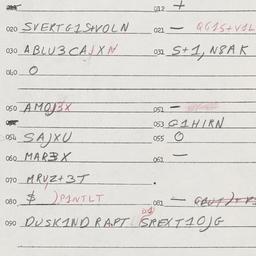 012 +
020 SVERTG1S+VOLN 021 — QG1S+V1L
030 ABLU3CAJXN 031 S+1, N8AK
040 O
050 AMOJ3X 051 —
053 G1HIRN
054 SAJXU 055 O
060 MAR3X 061 —
070 MRVZ+3T
080 $ )P1NTLT 081 —
090 DUSK1ND RAPT SREXT10JG